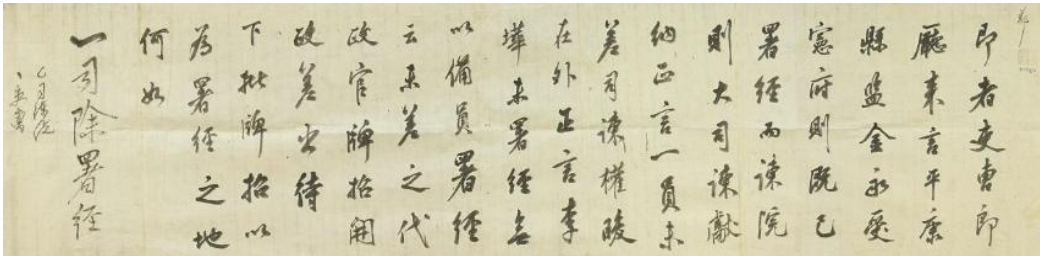 即者吏曹郎
廳来言平康
縣監金永爰
憲府則既已
署經而諫院
則大司諫獻
納正言一員未
差司諫權晙
在外正言李
墷未署經無
以備員署經
云未差之代
政官牌招開
政差出待
下批牌招以
為署經之地
何如
一司除署經